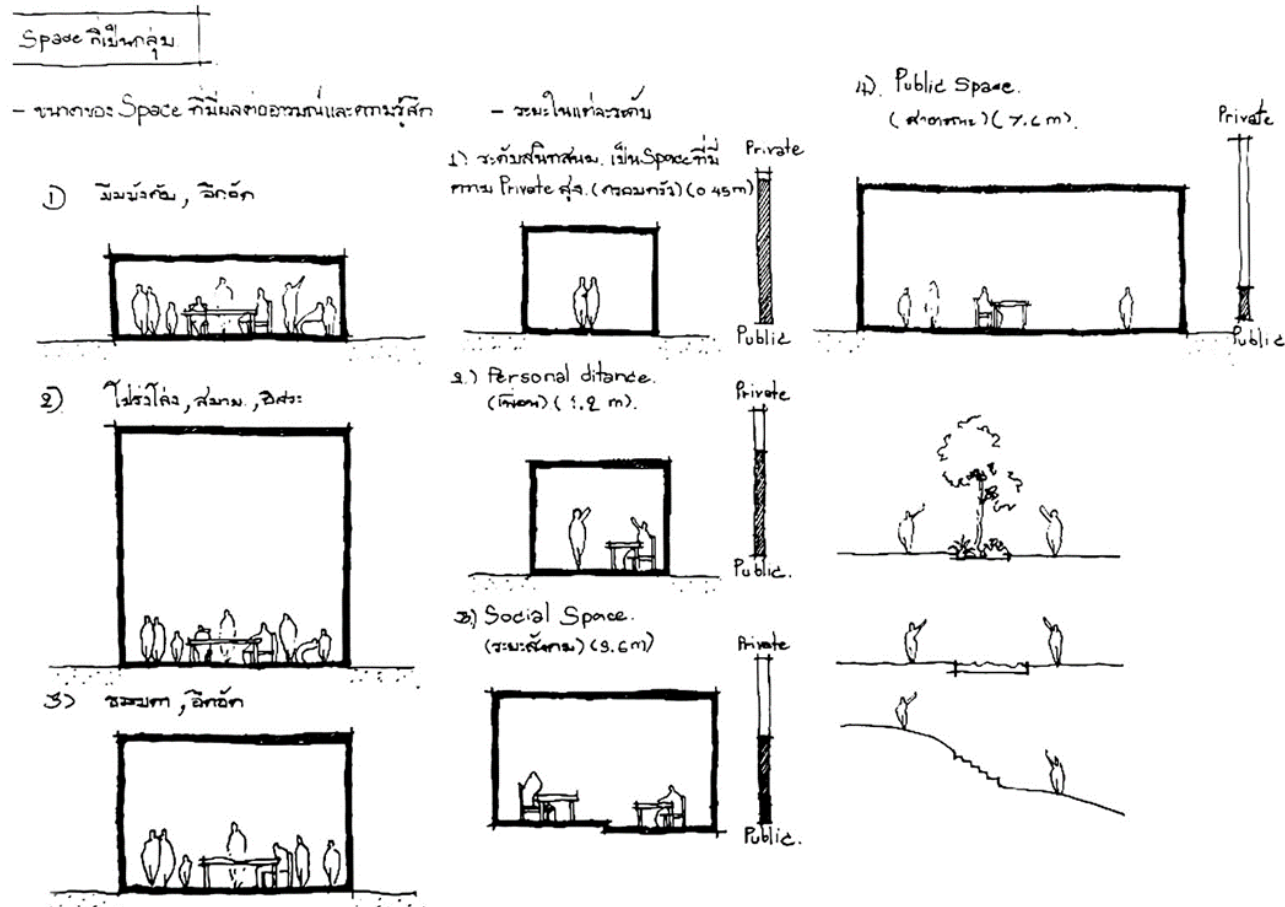 Space ที่เป็นกลุ่ม
- ขนาดของ Space ที่มีผลต่ออารมณ์และความรู้สึก
1)
อึดอัด
2) โปร่งโล่ง, สบาย, อิสระ
3) อึดอัด
- ระยะในแต่ละระดับ
1) ระดับสนิทสนม. เป็น Space ที่มี
ความ Private สูง. (ครอบครัว) (0.45m)
Private
Public
2.) Personal ditance.
(เพื่อน) (1.2 m).
Private
Public.
3.) Social Space.
(ระยะสังคม) (3.6m)
Private
Public.
4). Public Space.
(สาธารณะ) (7.6m).
Private
Public